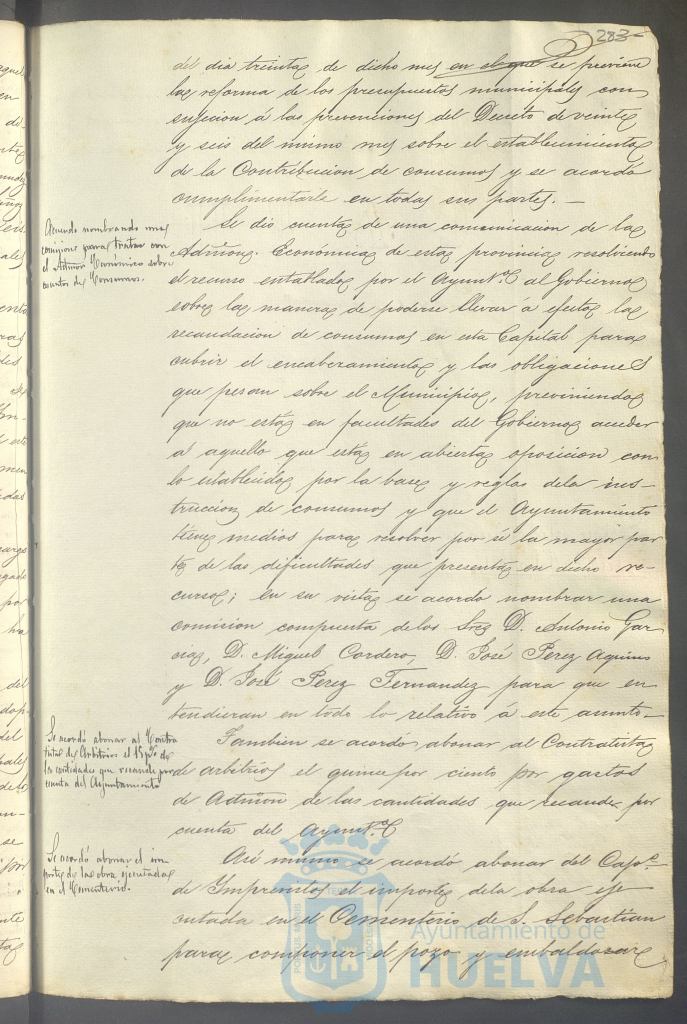 283
del dia treinta de dicho mes en el que se previene
la reforma de los presupuestos municipales con
sujecion á las prevenciones del Decreto de veinte
y seis del mismo mes sobre el establecimiento
de la Contribucion de consumos y se acordó
cumplimentarle en todas sus partes. —
Acuerdo nombrando una
comision para tratar con
el Admor Económico sobre
asuntos de Consumos.
Se dió cuenta de una comunicacion de la
Admon. Económica de esta provincia resolviendo
el recurso entablado por el Ayuntº al Gobierno
sobre la manera de poderse llevar á efecto la
recaudacion de consumos en esta Capital para
cubrir el encabezamiento y las obligaciones
que pesan sobre el Municipio, previniendo
que no está en facultades del Gobierno acceder
á aquello que está en abierta oposicion con
lo establecido por la base y reglas dela ins-
truccion de consumos y que el Ayuntamiento
tiene medios para resolver por sí la mayor par
te de las dificultades que presenta en dicho re-
curso; en su vista se acordó nombrar una
comision compuesta delos Sres D. Antonio Gar-
cia, D. Miguel Cordero, D. José Perez Aquino
y D. José Perez Fernandez para que en
tendieran en todo lo relativo á este asunto—
Se acordó abonar al Contra
tista de Arbitrios el 15 p% de
las cantidades que recaude por
cuenta del Ayuntamiento
Tambien se acordó abonar al Contratista
de arbitrios el quince por ciento por gastos
de Admon de las cantidades que recaude por
cuenta del Ayuntº
Se acordó abonar el im
porte de la obra ejecutada
en el Cementerio.
Asi mismo se acordó abonar del Capº
de Imprevistos el importe dela obra eje
cutada en el Cementerio de S. Sebastian
para componer el pozo y embaldosar
Ayuntamiento de
HUELVA